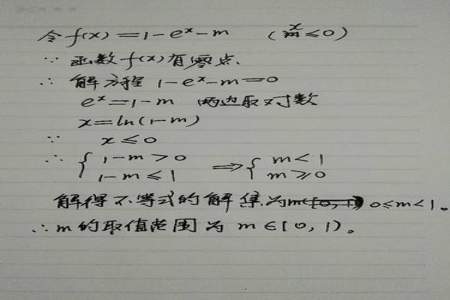 令 f(x)=1-eˣ-m (x≤0)
∵ 函数 f(x)有零点.
∴ 解方程 1-eˣ-m=0
eˣ=1-m 两边取对数
x=ln(1-m)
∵ x≤0
∴ { 1-m>0 1-m≤1 ⇒ { m<1 m≥0
解得不等式的解集为 0≤m<1。
∴ m的取值范围为 m∈[0,1)。